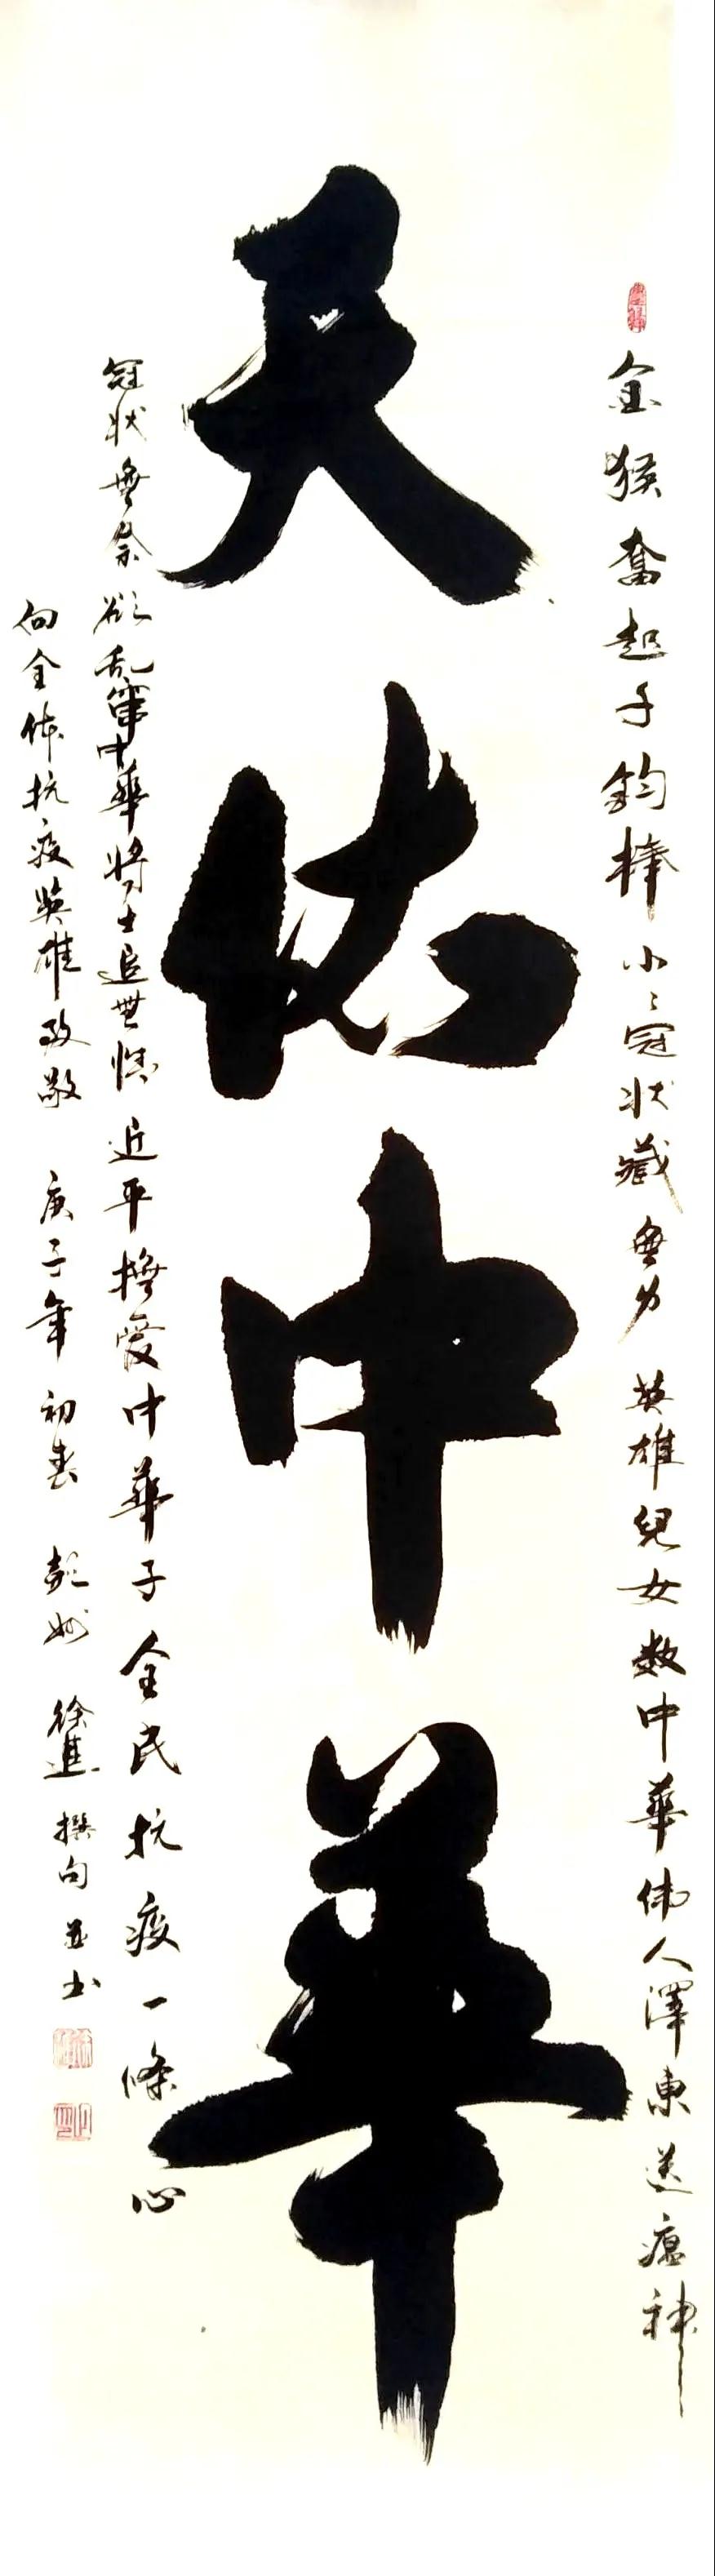 金猴奮起千鈞棒小小冠状藏無力英雄兒女数中華伟人澤東送瘟神
天佑中華
冠状無奈欲乱窜中華将士追無情近平撫愛中華子全民抗疫一條心
向全体抗疫英雄致敬庚子年初春彭州徐進撰句並书